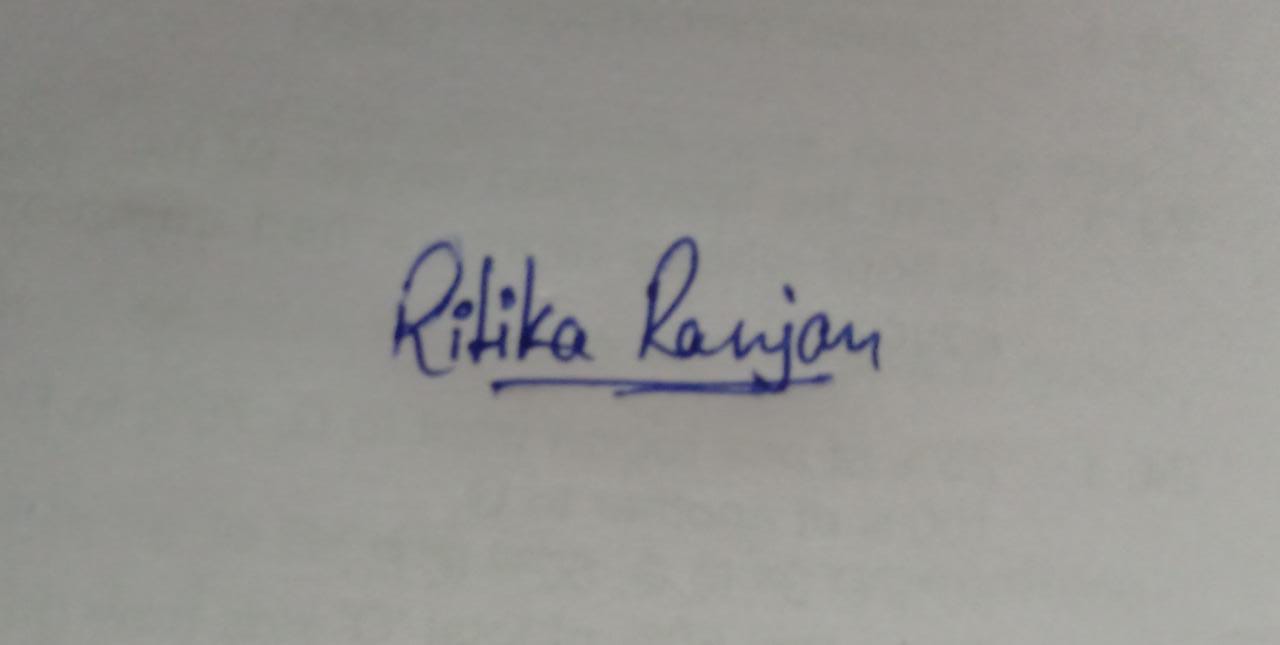 Ritika Ranjan